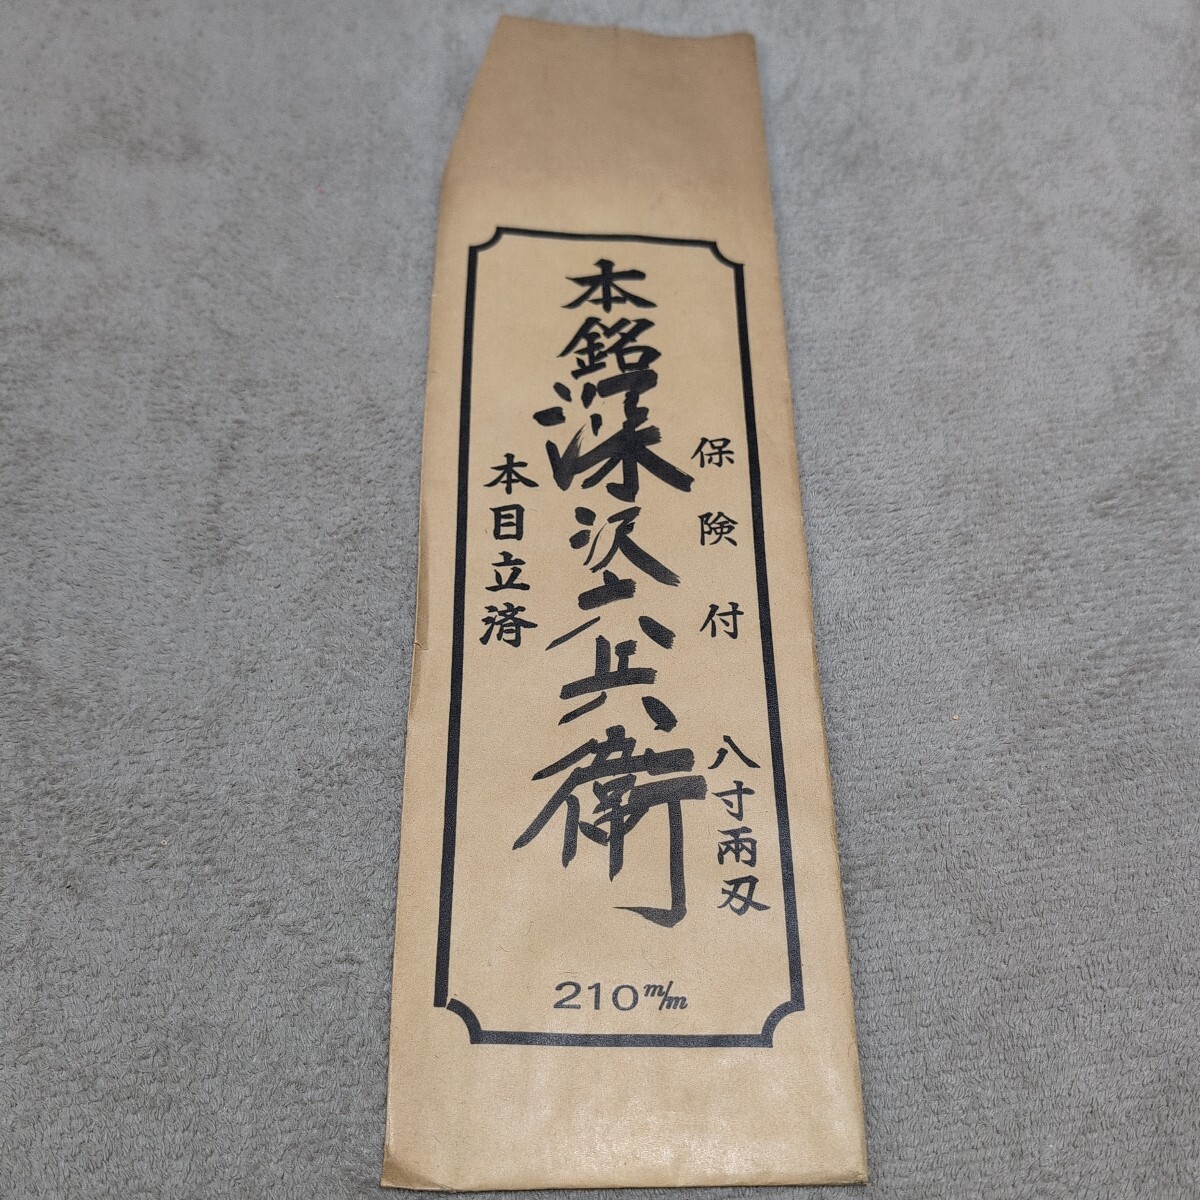 保険付
八寸両刃
本銘深沢六兵衛
本目立済
210m/m